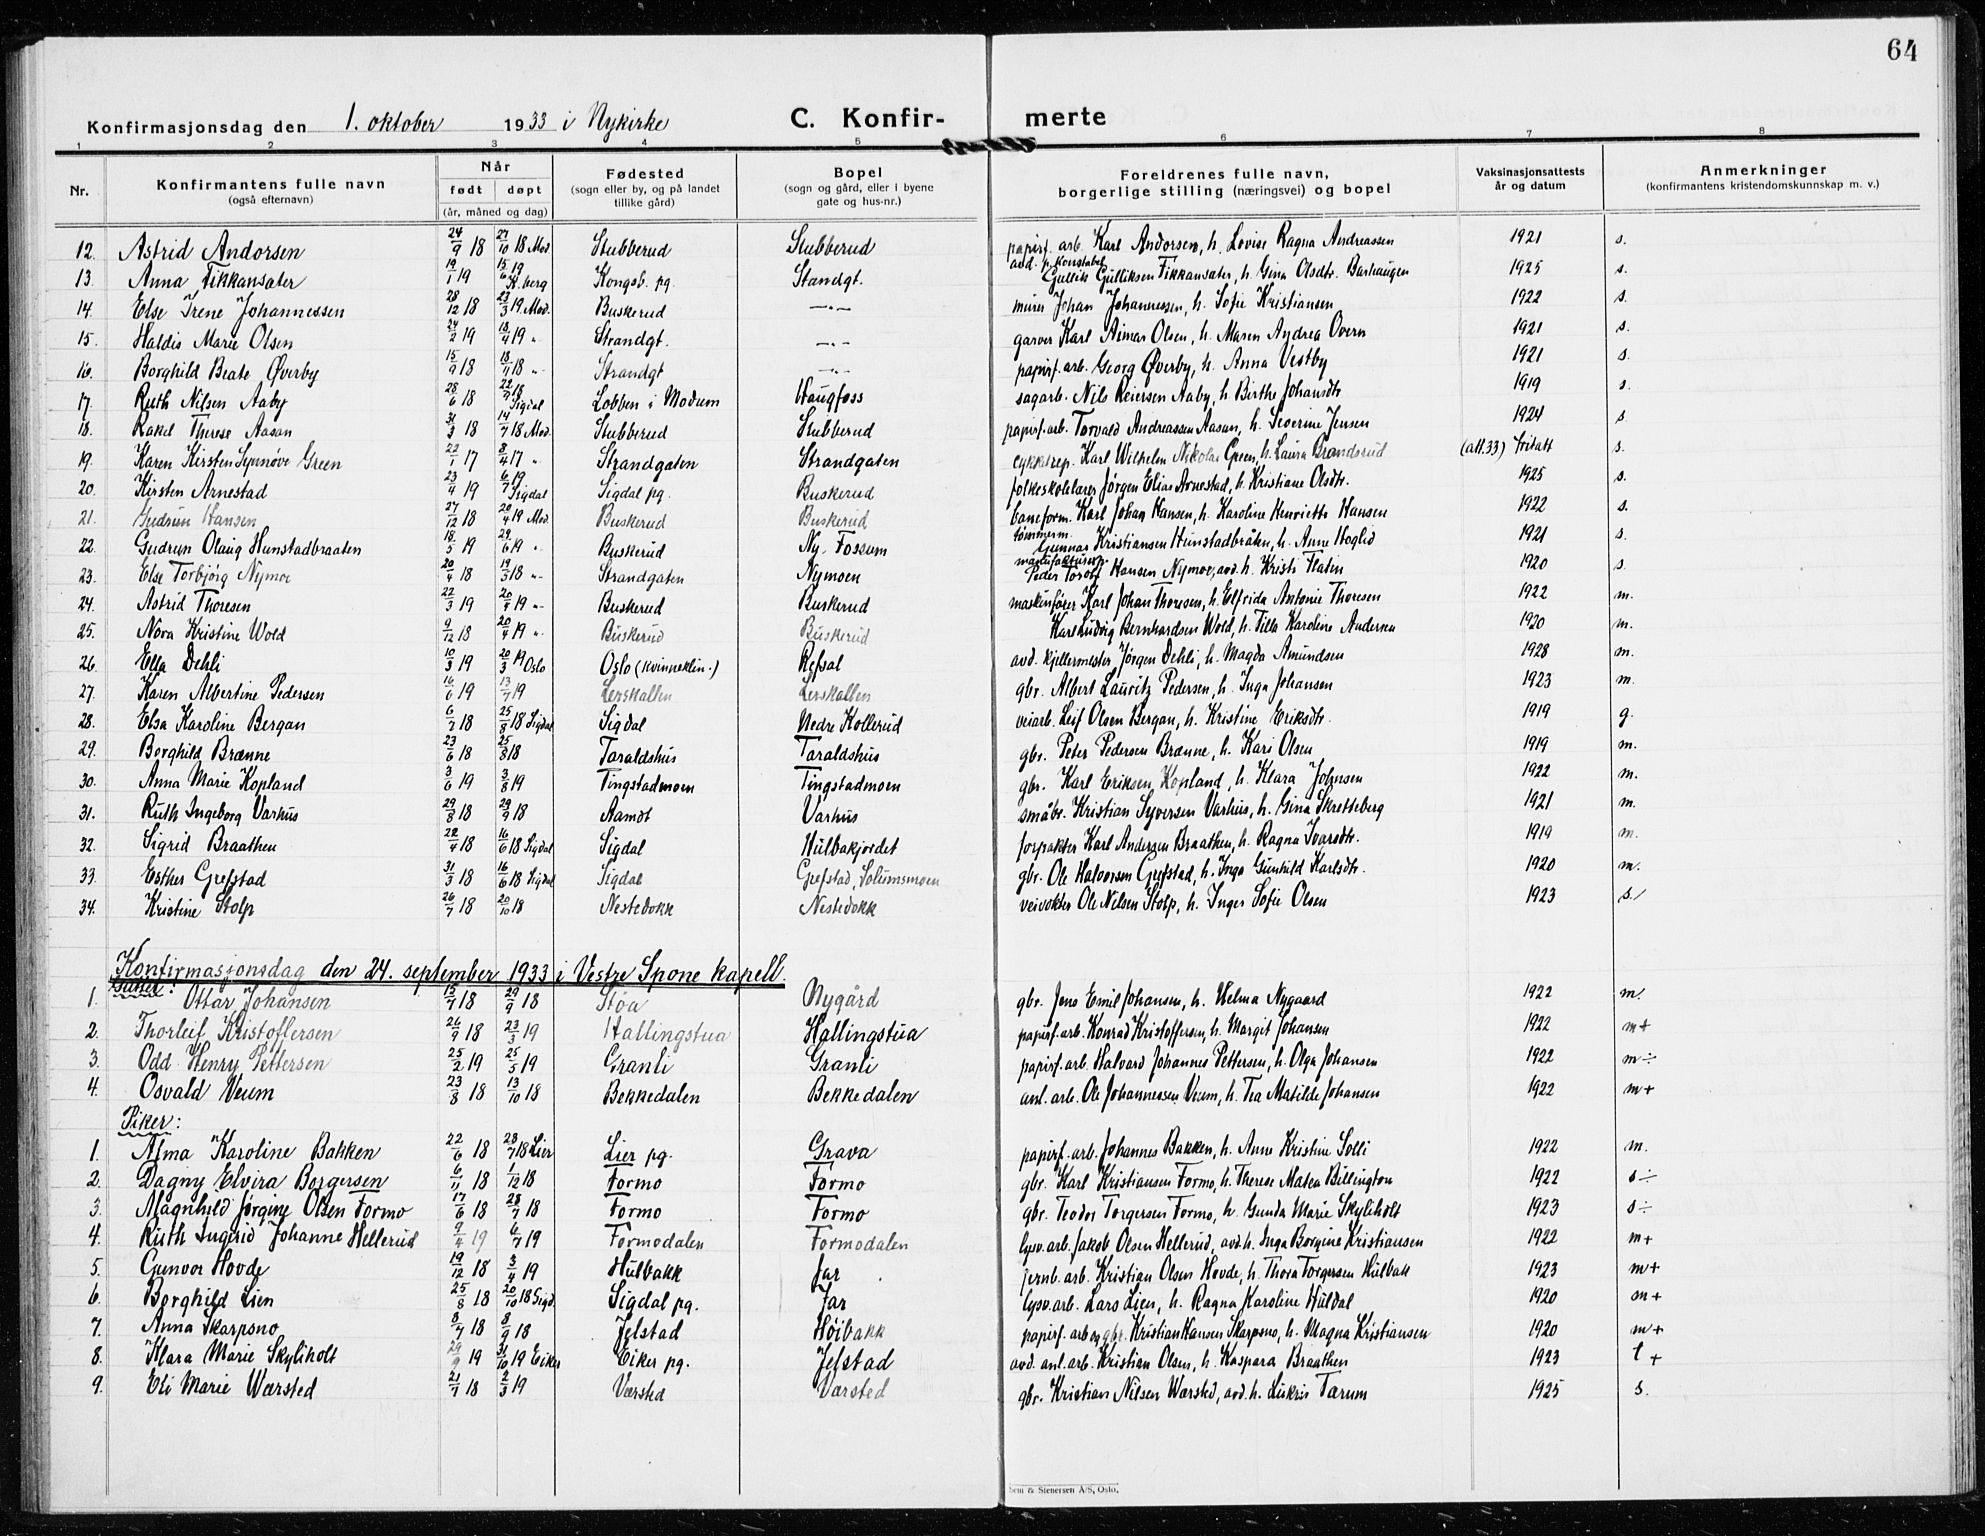 64
Konfirmasjonsdag den 1. oktober 1933 i Nykirke C. Konfir- merte
1 2 3 4 5 6 7 8
Nr. Konfirmantens fulle navn (også efternavn) Når født døpt (år, måned og dag) Fødested (sogn eller by, og på landet tillike gård) Bopel (sogn og gård, eller i byene gate og hus-nr.) Foreldrenes fulle navn, borgerlige stilling (næringsvei) og bopel Vaksinasjonsattests år og datum Anmerkninger (konfirmantens kristendomskunnskap m. v.)
12. Astrid Andorsen 24/9 18 27/10 18 Mod. Stubberud Stubberud papirf. arb. Karl Andorsen, h. Lovise Ragna Andreassen 1921 s.
13. Anna Fikkansater 19/1 19 15/6 19 K.berg Kongsb. pg. Standgt. avd. p. konstabel Gullik Gulliksen Fikkansater, h. Gina Olsdtr. Barhaugen 1925 s.
14. Else Irene Johannessen 28/12 18 23/3 19. Mod. Buskerud —"— murer Johan Johannessen, h. Sofie Kristiansen 1922 s.
15. Haldis Marie Olsen 24/2 19 18/4 19 " Strandgt. —"— garver Karl Aimar Olsen, h. Maren Andrea Overn 1921 s.
16. Borghild Beate Øverby 15/9 18 18/11 18 " Strandgt —"— papirf. arb. Georg Øverby, h. Anna Vestby 1921 s.
17. Ruth Nilsen Aaby 28/6 18 22/9 18 Sigdal Lobben i Modum Haugfoss sagarb. Nils Reiersen Aaby, h. Birthe Johansdtr 1919 s.
18. Rakel Therese Aasan 31/3 18 14/7 18 Mod. Stubberud Stubberud papirf. arb. Torvald Andreassen Aasan, h. Severine Jensen 1924 s.
19. Karen Kirsten Synnøve Green 22/1 17 8/4 17 " Strandgaten Strandgaten cykkrep. Karl Wilhelm Nikolai Green, h. Laura Brandsrud (att. 33) fritatt s.
20. Kirsten Arnestad 23/4 19 6/7 19 Sigdal Sigdal pg. Buskerud folkeskolelærer Jørgen Elias Arnestad, h. Kristiane Olsdtr. 1925 s.
21. Gudrun Hansen 27/12 18 20/4 19 Mod. Buskerud Buskerud baneform. Karl Johan Hansen, h. Karoline Henriette Hansen 1922 s.
22. Gudrun Olaug Hunstadbraaten 18/5 19 29/6 19 " Buskerud Ny-Fossum tømmerm. Gunnar Kristiansen Hunstadbråten, h. Anne Hoglid 1921 s.
23. Else Torbjørg Nymoe 20/4 18 19/3 18 " Strandgaten Nymoen Peder Torolf Hansen Nymoe, avd. h. Kristi Flaten 1920 s.
24. Astrid Thoresen 22/3 19 20/4 19 " Buskerud Buskerud maskinfører Karl Johan Thoresen, h. Elfrida Antonie Thoresen 1922 m.
25. Nora Kristine Wold 9/12 18 20/4 19 " Buskerud Buskerud Karl Ludvig Bernhardsen Wold, h. Tilla Karoline Andersen 1920 m.
26. Ella Dehli 10/3 19 20/3 19 Oslo Oslo (kvinneklin.) Refsal avd. kjellermester Jørgen Dehli, h. Magda Amundsen 1928 m.
27. Karen Albertine Pedersen 16/6 19 13/7 19 Lerskallen Lerskallen gbr. Albert Lauritz Pedersen, h. Inga Johansen 1923 m.
28. Elsa Karoline Bergan 6/7 18 25/8 18 Sigdal Sigdal Nedre Kollerud veiarb. Leif Olsen Bergan, h. Kristine Eriksdtr. 1919 g.
29. Borghild Brænne 23/6 18 25/8 18 Taraldshus Taraldshus gbr. Peter Pedersen Brænne, h. Kari Olsen 1919 m.
30. Anna Marie Kopland 3/6 19 3/8 19 Tingstadmoen Tingstadmoen gbr. Karl Eriksen Kopland, h. Klara Johnsen 1922 m.
31. Ruth Ingeborg Varhus 29/8 18 29/9 18 Aamot Varhus småbr. Kristian Syversen Varhus, h. Gina Skretteberg 1921 m.
32. Sigrid Braathen 22/4 18 16/6 18 Sigdal Sigdal Hulbakjordet forpakter Karl Andersen Braathen, h. Ragna Ivarsdtr. 1919 m.
33. Esther Grefstad 31/3 18 16/6 18 Sigdal Sigdal Grefstad, Solumsmoen gbr. Ole Halvorsen Grefstad, h. Inga Gunhild Karlsdtr. 1920 m.
34. Kristine Stolp 26/7 18 20/10 18 Nestedokk Nestedokk veivokter Ole Nilsen Stolp, h. Inger Sofie Olsen 1923 s.
Konfirmasjonsdag den 24. september 1933 i Vestre Spone kapell.
Gutter:
1. Ottar Johansen 15/7 18 29/9 18 Støa Nygård gbr. Jens Emil Johansen, h. Helma Nygaard 1922 m.
2. Thorleif Kristoffersen 26/9 18 23/3 19 Hallingstua Hallingstua papirf. arb. Konrad Kristoffersen, h. Margit Johansen 1922 m+
3. Odd Henry Pettersen 25/2 19 25/5 19 Granli Granli papirf. arb. Halvard Johannes Pettersen, h. Olga Johansen 1922 m÷
4. Osvald Veum 23/8 18 13/10 18 Bekkedalen Bekkedalen anl. arb. Ole Johannessen Veum, h. Tea Matilde Johansen 1922 m+
Piker:
1. Alma Karoline Bakken 22/6 18 28/7 18 Lier Lier pg. Grava papirf. arb. Johannes Bakken, h. Anne Kristine Solli 1922 m.
2. Dagny Elvira Borgersen 6/11 18 1/12 18 Formo Formo gbr. Karl Kristiansen Formo, h. Therese Matea Billington 1922 s÷
3. Magnhild Jørgine Olsen Formo 17/6 18 28/7 18 Formo Formo gbr. Teodor Torgersen Formo, h. Gunda Marie Skyliholt 1923 s÷
4. Ruth Ingerid Johanne Hellerud 9/4 19 6/7 19 Formodalen Formodalen lysv. arb. Jakob Olsen Hellerud, avd. h. Inga Borgine Kristiansen 1922 m+
5. Gunvor Hovde 19/12 18 3/4 19 Hulbakk Jar jernb. arb. Kristian Olsen Hovde, h. Thora Torgersen Hulbak 1923 m+
6. Borghild Lien 25/8 18 20/10 18 Sigd. Sigdal pg. Jar lysv. arb. Lars Lien, h. Ragna Karoline Huldal 1920 m+
7. Anna Skarpsno 8/7 18 8/9 18 Jelstad Høibakk papirf. arb og gbr. Kristian Hansen Skarpsno, h. Magna Kristiansen 1920 m+
8. Klara Marie Skyliholt 29/9 19 31/10 19 Eiker Eiker pg. Jelstad avd. anl. arb. Kristian Olsen, h. Kaspara Braathen 1923 t+
9. Eli Marie Wærsted 21/7 18 2/3 19 Værsted Værsted gbr. Kristian Nilsen Wærsted, avd. h. Lukris Tarum 1925 s.
bem & Stenersen A/S, Oslo.